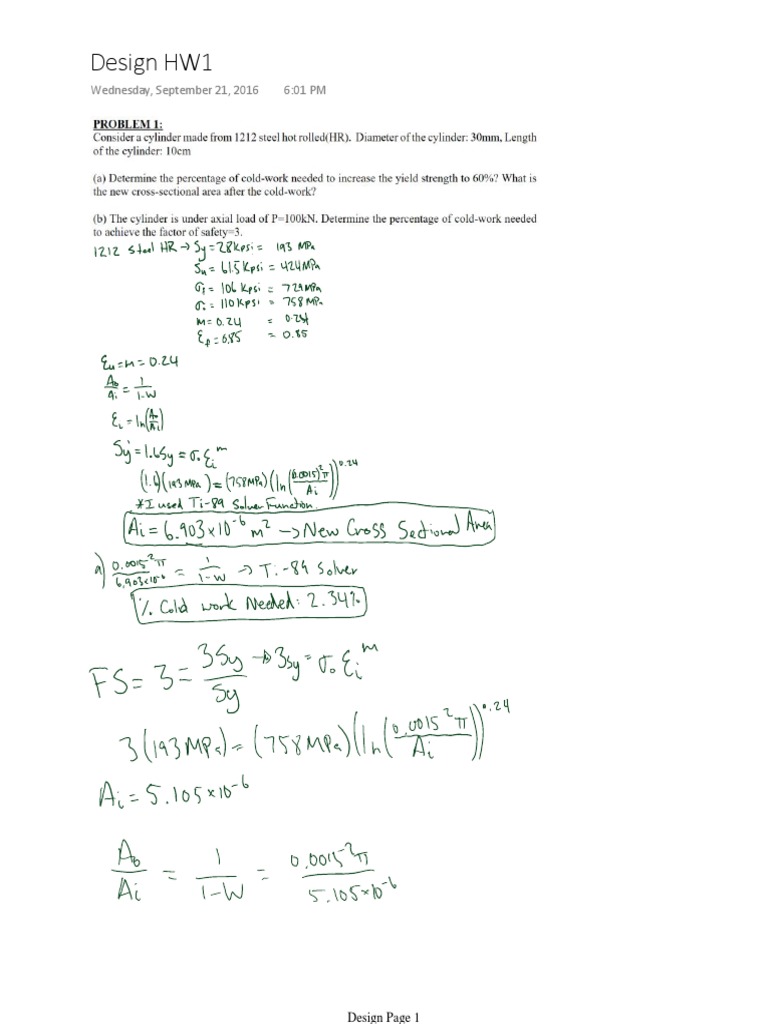 Design HW1
Wednesday, September 21, 2016 6:01 PM
PROBLEM 1:
Consider a cylinder made from 1212 steel hot rolled(HR). Diameter of the cylinder: 30mm, Length
of the cylinder: 10cm
(a) Determine the percentage of cold-work needed to increase the yield strength to 60%? What is
the new cross-sectional area after the cold-work?
(b) The cylinder is under axial load of P=100kN. Determine the percentage of cold-work needed
to achieve the factor of safety=3.
1212 Steel HR → Sy = 28 Kpsi = 193 MPa
Su = 61.5 Kpsi = 424 MPa
σi = 106 Kpsi = 729 MPa
σo = 110 Kpsi = 758 MPa
m = 0.24 = 0.24
εf = 0.85 = 0.85
εu = m = 0.24
Ao/Ai = 1/1-W
εi = ln(Ao/Ai)
Sy' = 1.6Sy = σo εi^m
(1.6)(193 MPa) = (758MPa)(ln((0.0015)²π/Ai))^0.24
*I used Ti-89 Solver Function.
Ai = 6.903x10^-6 m² → New Cross Sectional Area
a) 0.0015²π/6.903x10^-6 = 1/1-W → Ti-89 Solver
% Cold work Needed: 2.34%
FS = 3 = 3Sy/Sy → 3Sy = σo εi^m
3(193MPa) = (758MPa)(ln(0.0015²π/Ai))^0.24
Ai = 5.105x10^-6
Ao/Ai = 1/1-W = 0.0015²π/5.105x10^-6
Design Page 1